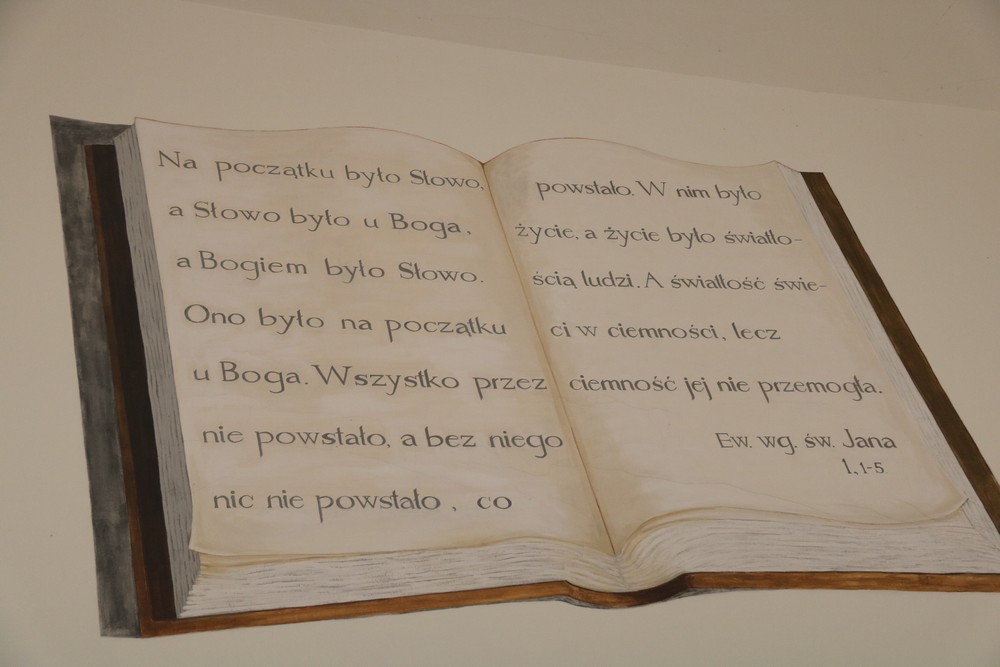 Na początku było Słowo,
a Słowo było u Boga,
a Bogiem było Słowo.
Ono było na początku
u Boga. Wszystko przez
nie powstało, a bez niego
nic nie powstało, co
powstało. W nim było
życie, a życie było światło-
ścią ludzi. A światłość świe-
ci w ciemności, lecz
ciemność jej nie przemogła.
Ew. wg. św. Jana
1,1-5.